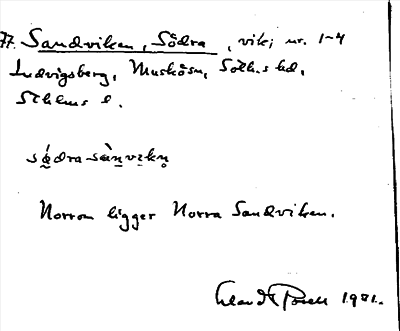 77. Sandviken, Södra, vik; nr. 1-4
Ludvigsberg, Muskösn, Soth.s hd,
Sthlms l.
sǿdra sànvikn̥
Norrom ligger Norra Sandviken.
1981.